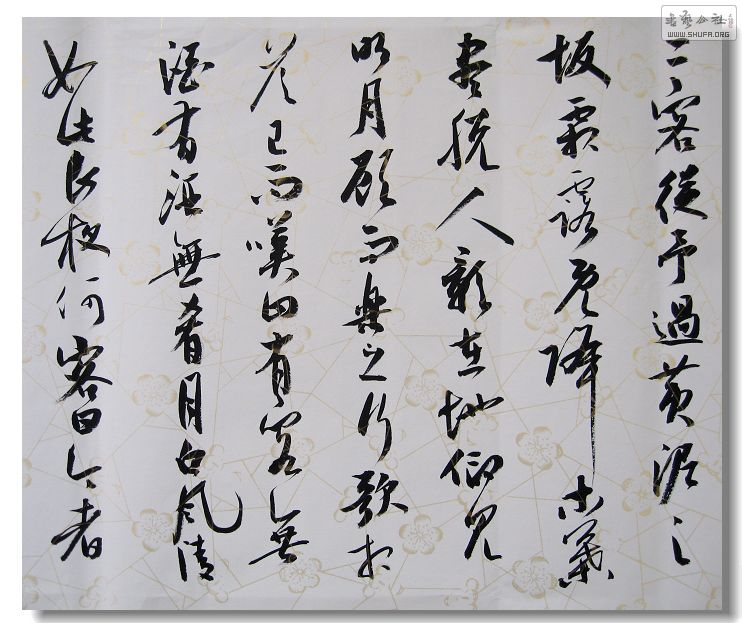 二客從予過黃泥之
坂霜露既降木葉
盡脫人影在地仰見
明月顧而樂之行歌相
答已而嘆曰有客無
酒有酒無肴月白風清
如此良夜何客曰今者
書藝公社
WWW.SHUFA.ORG